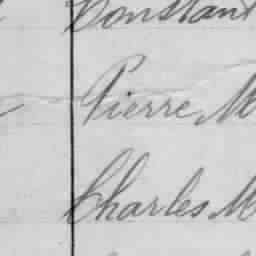 Constant
Pierre M
Charles M